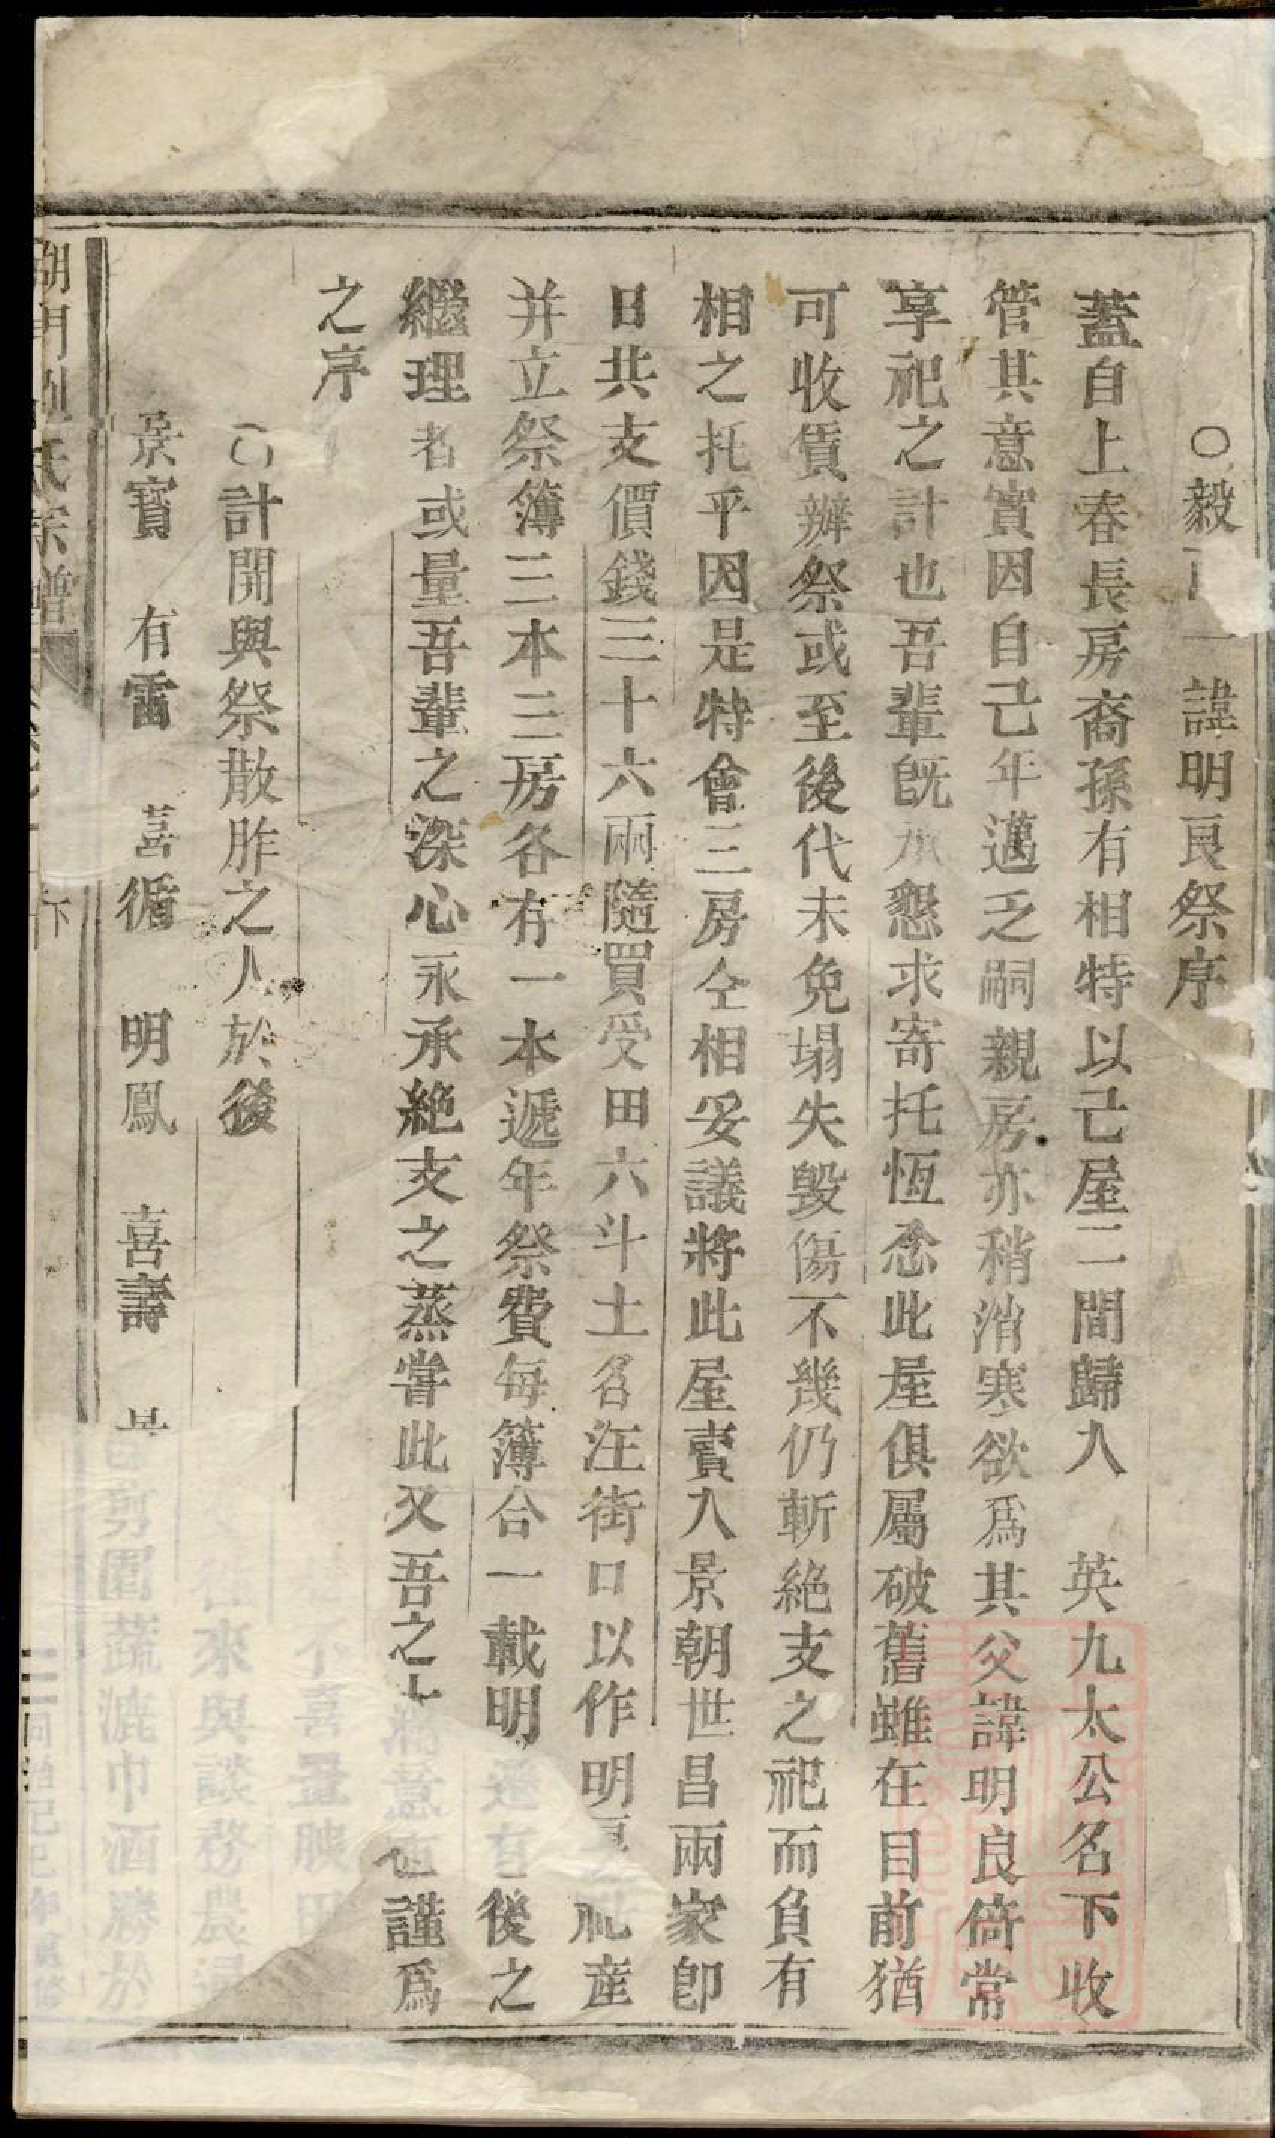 ○毅 一諱明良祭序
蓋自上春長房裔孫有相特以己屋二間歸入 英九太公名下收
管其意實因自己年邁乏嗣親房亦稍消寒欲爲其父諱明良倚常
享祀之計也吾輩既承懇求寄托恆念此屋俱屬破舊雖在目前猶
可收賃辦祭或至後代未免塌失毀傷不幾仍斬絶支之祀而負有
相之托乎因是特會三房仝相妥議將此屋賣入景朝世昌兩家卽
日共支價錢三十六兩隨買受田六斗土名汪街口以作明 祀産
并立祭簿三本三房各存一本遞年祭費每簿合一載明 後之
繼理者或量吾輩之深心永承絶支之蒸嘗此又吾之 也謹爲
之序
○計開與祭散胙之人於後
景寳 有雷 喜循 明鳳 喜壽
剪園蔬漉巾酒勝於
往來與談務農
不喜置腴田
氏宗譜
下
同治己巳年重修